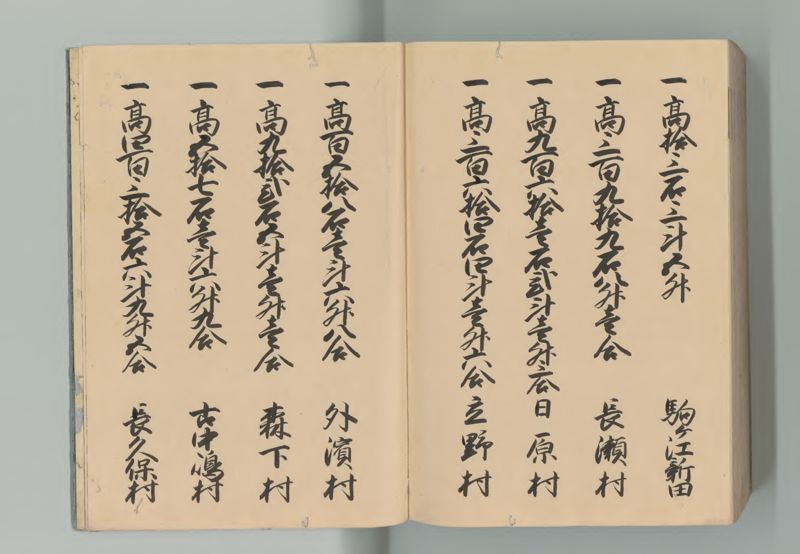 一高拾三石三斗五升 駒ヶ江新田
一高三百九拾九石八升壱合 長瀬村
一高九百六拾壱石弐斗壱升三合 日原村
一高三百六拾四石四斗壱升六合 立野村
一高百五拾八石壱斗六升八合 外濱村
一高九拾弐石五斗壱升壱合 森下村
一高五拾七石壱斗六升九合 古中嶋村
一高四百三拾五石六斗九升五合 長久保村